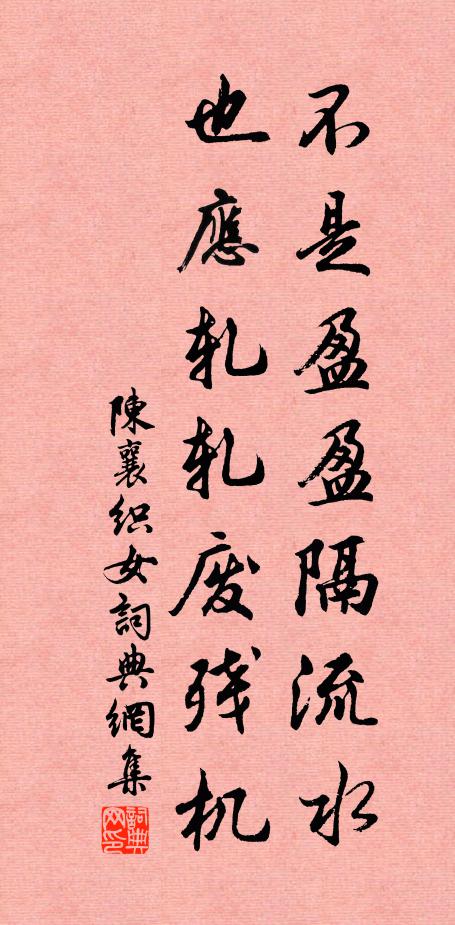 不是盈盈隔流水
也應轧轧废残机
陳襄织女詞典網集
詞典网印